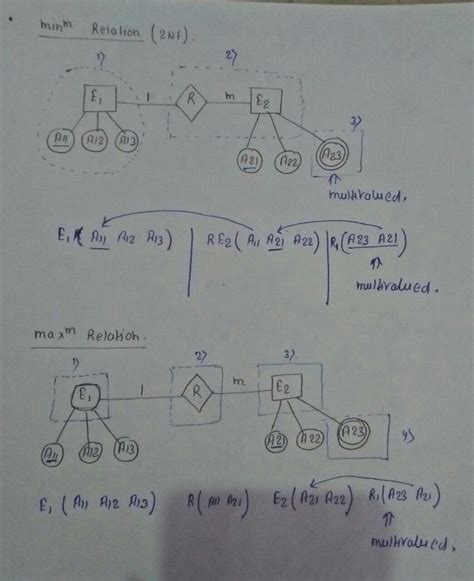 minᵐ Relation (2NF)
1) 2)
E1 1 R m E2
3)
A11 A12 A13 A21 A22 A23
multivalued.
E1( A11 A12 A13) RE2( A11 A21 A22) R1(A23 A21)
multivalued.
maxᵐ Relation.
1) 2) 3)
E1 1 R m E2
A11 A12 A13 A21 A22 A23 4)
E1 ( A11 A12 A13) R(A11 A21) E2(A21 A22) R1(A23 A21)
multivalued.